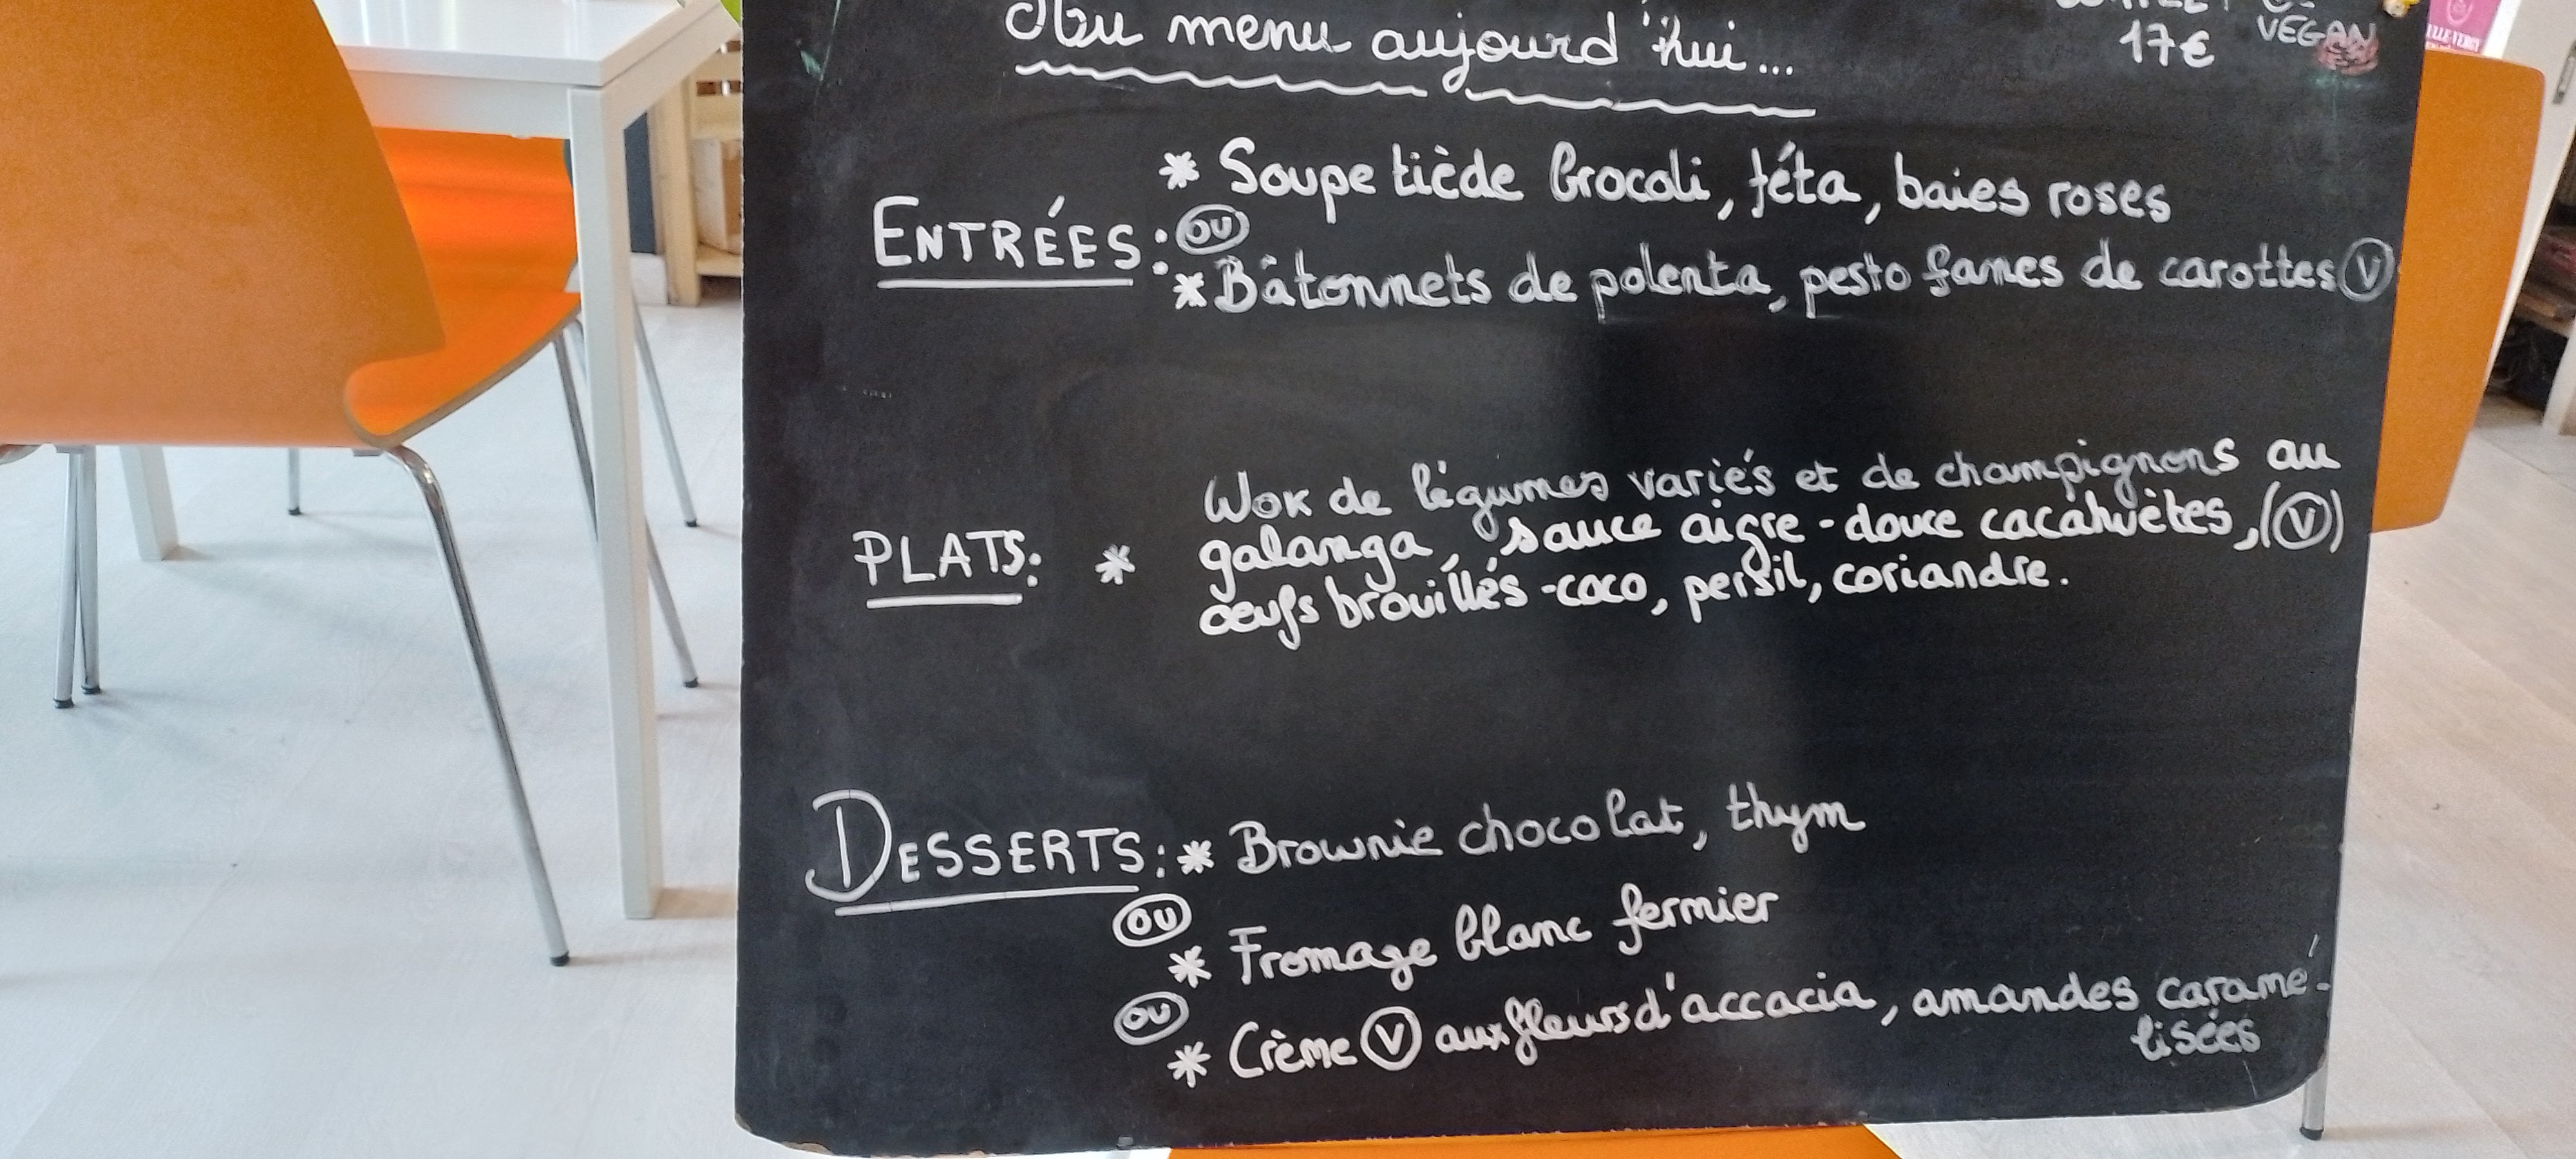 Au menu aujourd'hui...
17€
VEGAN
* Soupe tiède brocoli, féta, baies roses
ENTRÉES: OU
* Bâtonnets de polenta, pesto fanes de carottes V
Wok de légumes variés et de champignons au
PLATS: * galanga, sauce aigre-douce cacahuètes, (V)
oeufs brouillés-coco, persil, coriandre.
DESSERTS: * Brownie chocolat, thym
OU
* Fromage blanc fermier
OU
* Crème V aux fleurs d'accacia, amandes caramé-
lisées